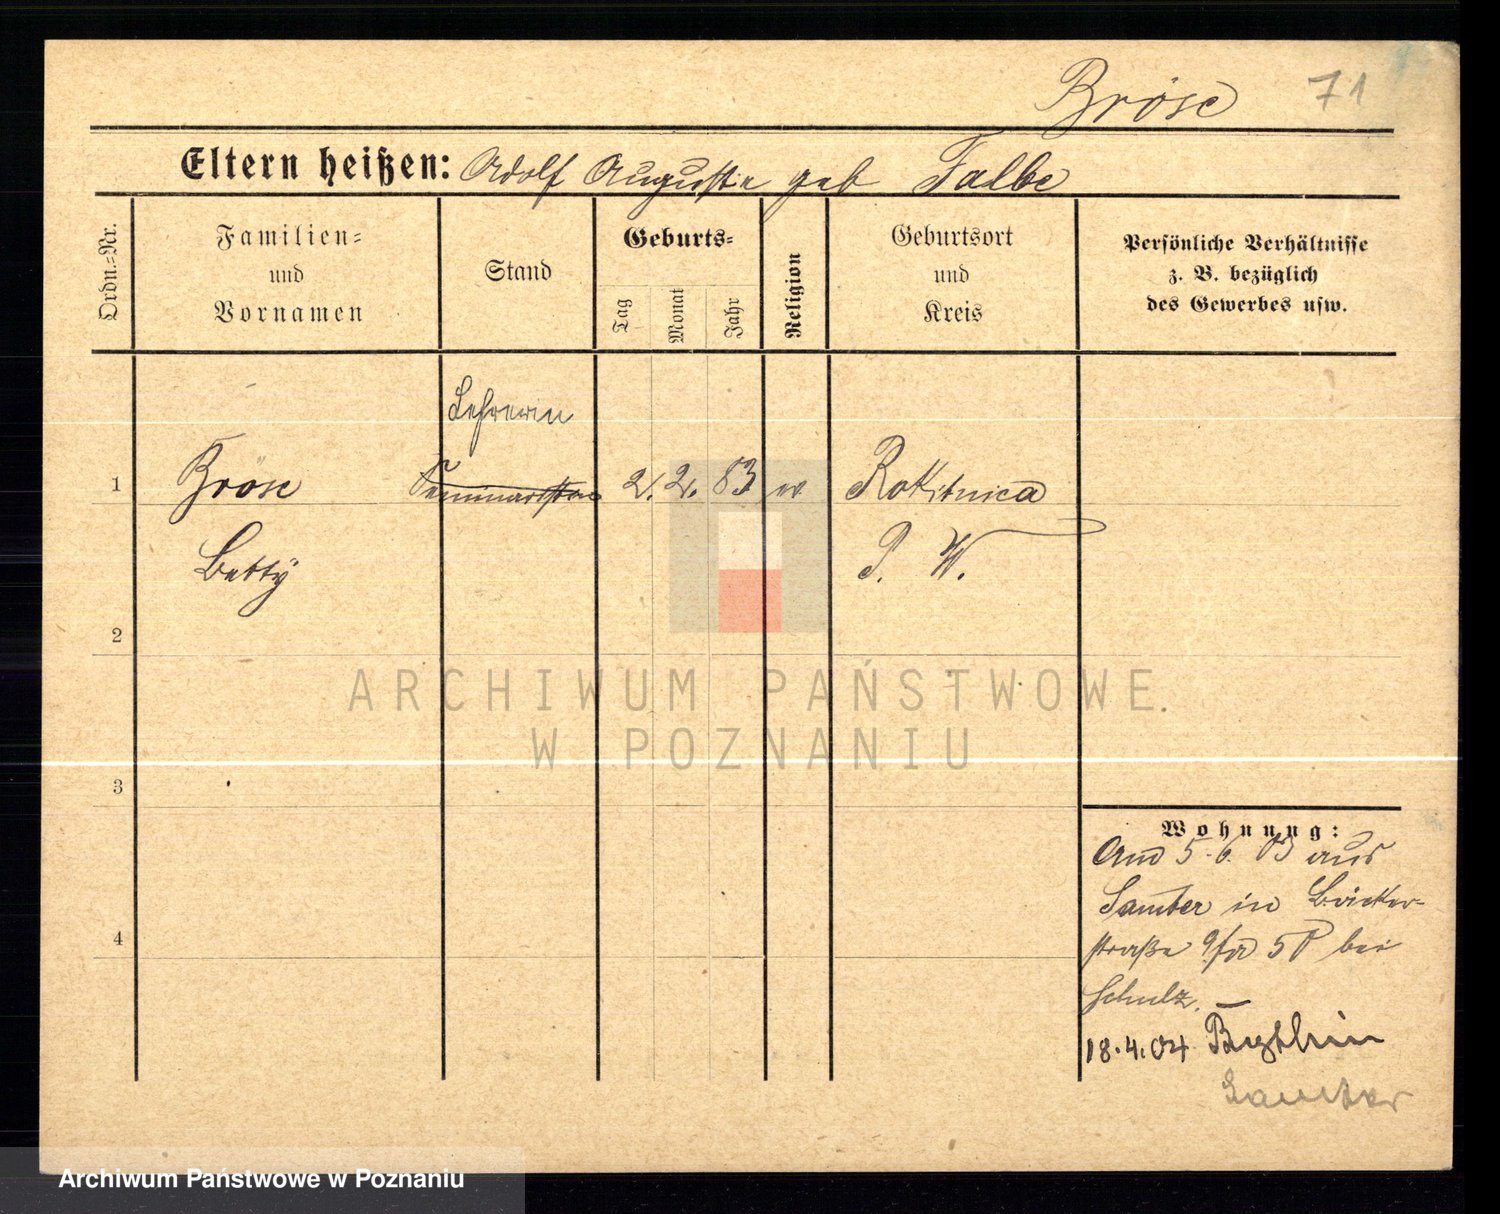 Bröse 71
Eltern heißen: Adolf Auguste geb Falbe
Ordn.=Nr.
Familien=
und
Vornamen
Stand
Geburts=
Tag
Monat
Jahr
Religion
Geburtsort
und
Kreis
Persönliche Verhältnisse
z. B. bezüglich
des Gewerbes usw.
Lehrerin
1 Bröse Seminaristin 2. 2. 83 ev Rokitnica
Betty P. W.
2
3
4
Wohnung:
Am 5.6. 03 aus
Samter in Bäcker-
straße 9/10 bei
Schulz.
18.4.04
Samter
ARCHIWUM PAŃSTWOWE
W POZNANIU
Archiwum Państwowe w Poznaniu